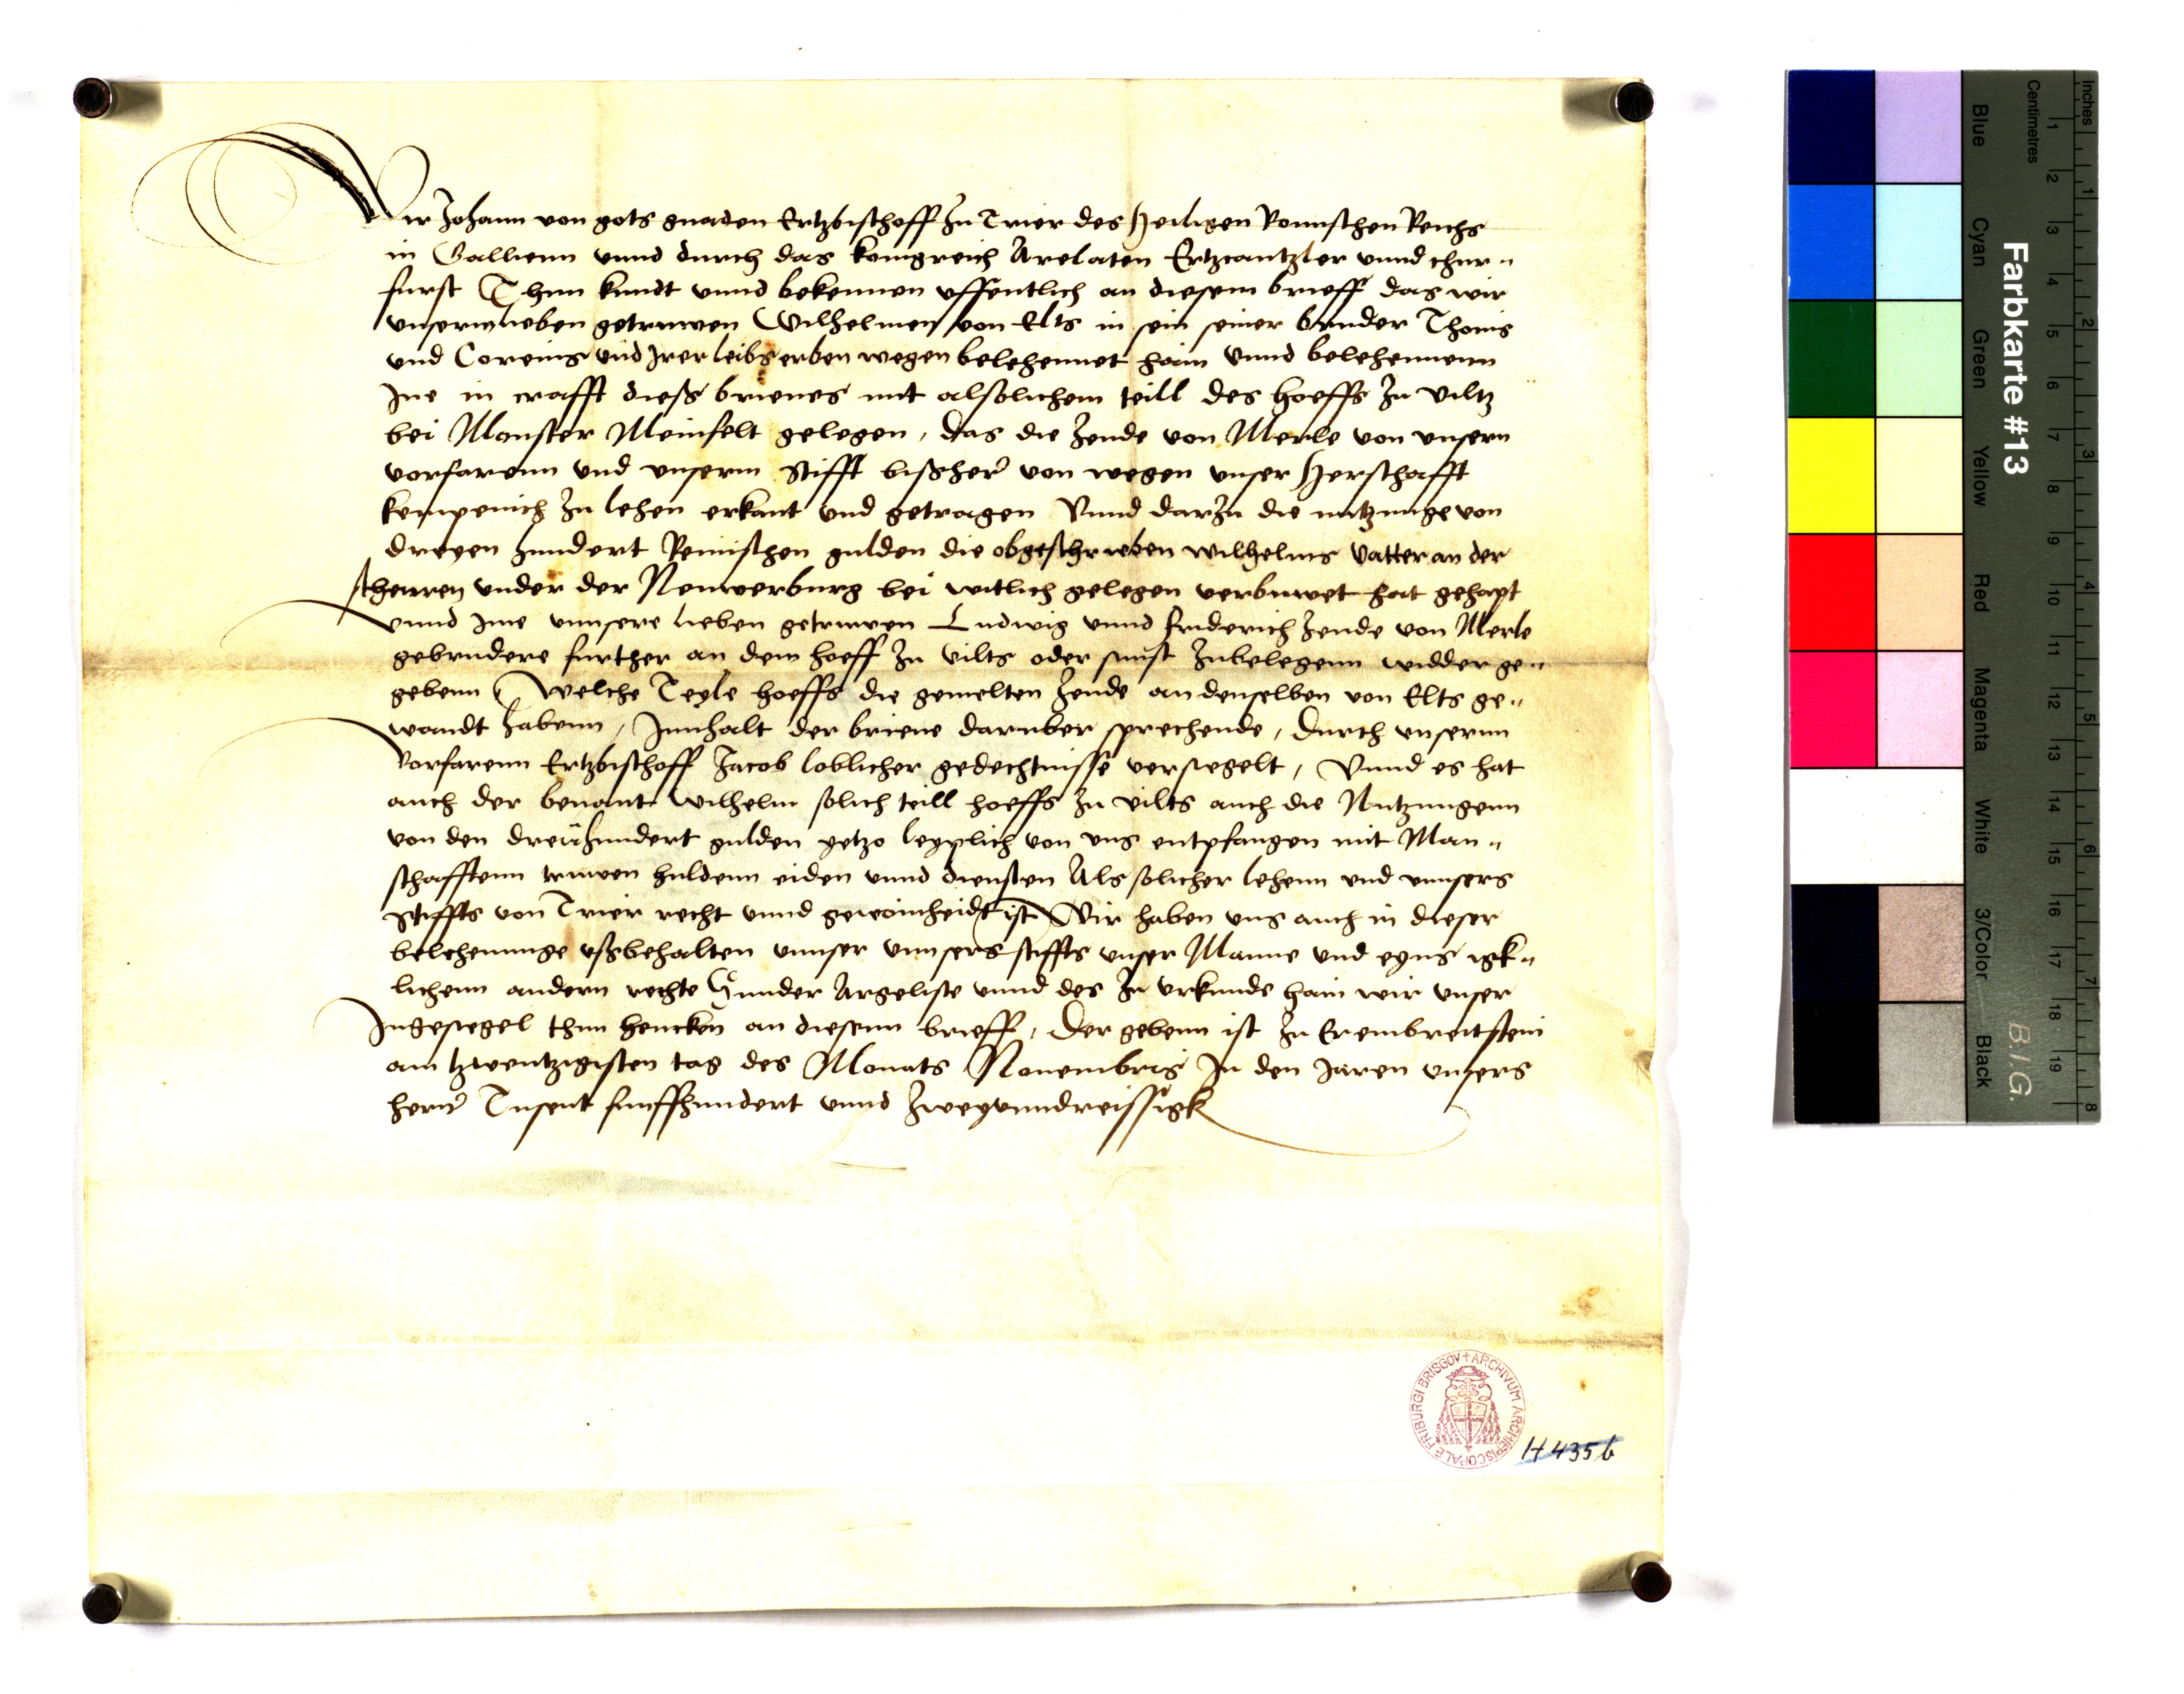 Wir Johann von gots gnaden Ertzbischoff zu Trier des Heiligen Romischen Reichs
in Gallienn vnnd durch das konigreich Arelaten Ertzcantzler vnnd chur„
furst Thun kundt vnnd bekennen offentlich an diesem brieff das wir
vnserm lieben getruwen Wilhelmen von Elts in sein seiner bruder Thonis
vnd Coreins vnd Jrer leibs erben wegen belehennet hain vnnd belehennenn
Jne in crafft dieß brieues mit alsolichem teill des hoeffs zu viltz
bei Monster Meinfelt gelegen, das die zende von Merle von vnsern
vorfarenn vnd vnserm Stifft bißher von wegen vnser Herschafft
kempenich zu lehen erkant vnd getragen Vnnd darzu die nutzunge von
dreyen hundert Reinischen gulden die obgeschrieben wilhelms vatter an der
scheuren vnder der Neuwerburg bei witlich gelegen verbuwet hat gehapt
vnnd Jme vnnsere lieben getruwen Ludwig vnnd friderich zende von Merle
gebrudere further an dem hoeff zu vilts oder sunst zubelegenn widder ge„
gebenn Welche Teyle hoeffs die gemelten zende an denselben von Elts ge„
wandt habenn, Jnnhalt der brieue daruber sprechende, durch vnsernn
vorfarenn Ertzbischoff Jacob loblicher gedechtnisse versiegelt, Vnnd es hat
auch der benant wilhelm solich teill hoeffs zu vilts auch die Nutzungenn
von den dreyhundert gulden yetzo leyplich von vns entpfangen mit Man„
schafftenn truwen huldenn eiden vnnd diensten Als solicher lehenn vnd vnnsers
Stiffts von Trier recht vnnd gewoinheidt ist Wir haben vns auch in dieser
belehennnge vßbehalten vnnser vnnsers stiffts vnser Manne vnd eyns igk„
lichenn andern rechte Sunder Argeliste vnnd des zu vrkunde hain wir vnser
Jngesiegel thun hencken an diesenn brieff, Der gebenn ist zu Erembreitstein
am tzwentzigisten tag des Monats Nouembris Jn den Jaren vnsers
hern Tusent funffhundert vnnd zweyvnndreissigk
ARCHIVUM ARCHIEPISCOPALE FRIBURGI BRISGOV
H 435 b
Farbkarte #13
Inches
Centimetres
1 2 3 4 5 6 7 8
1 2 3 4 5 6 7 8 9 10 11 12 13 14 15 16 17 18 19
Blue
Cyan
Green
Yellow
Red
Magenta
White
3/Color
Black
B.I.G.